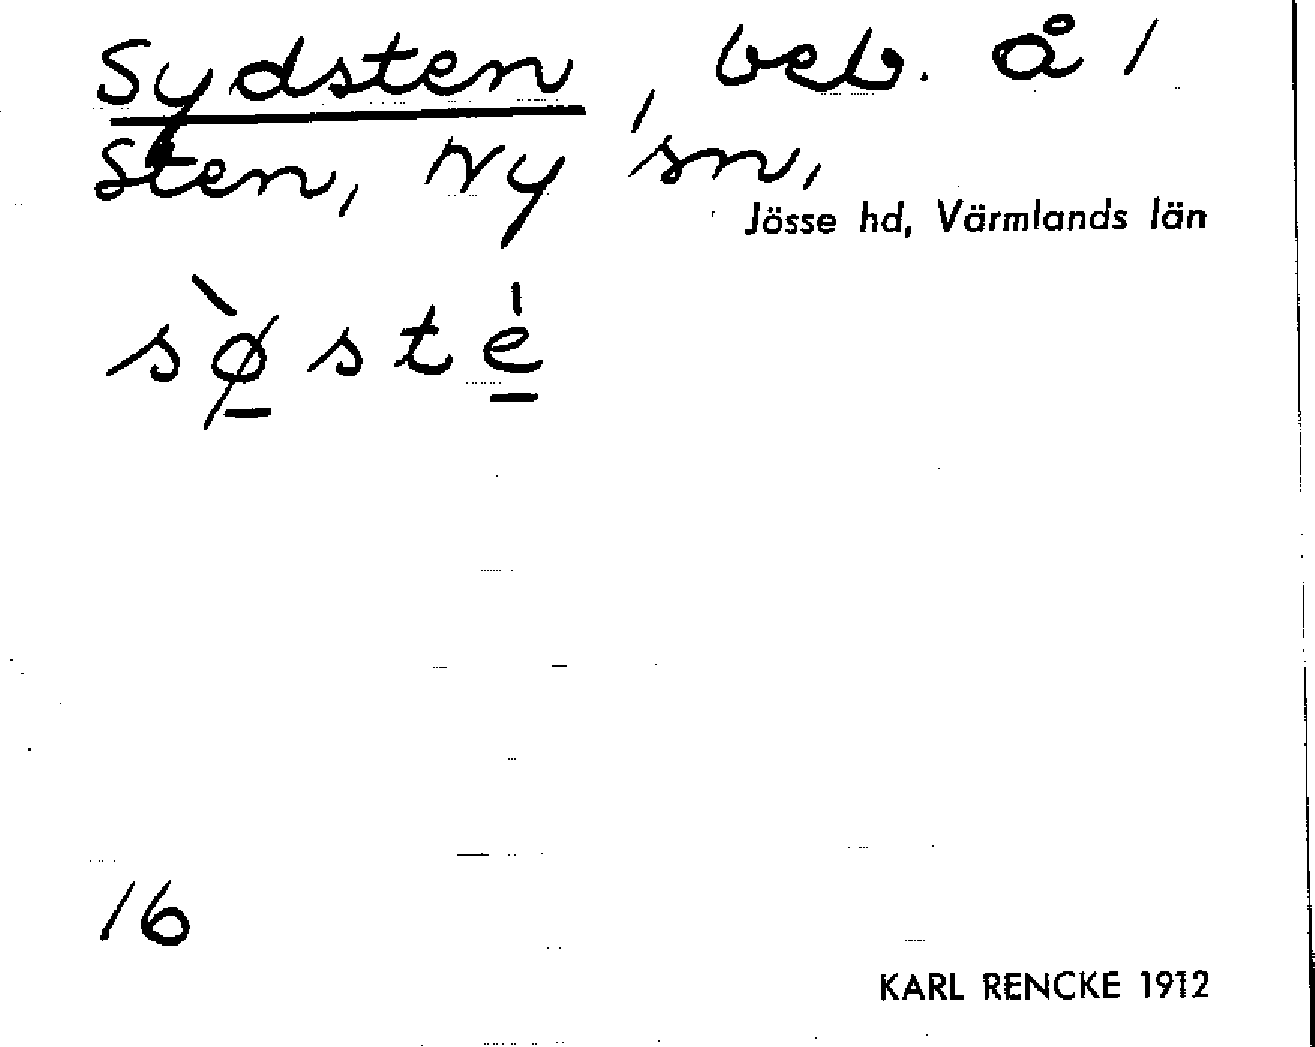 Sydsten, beb. å 1
Sten, Ny sn,
Jösse hd, Värmlands län
sø̀sté
16
KARL RENCKE 1912